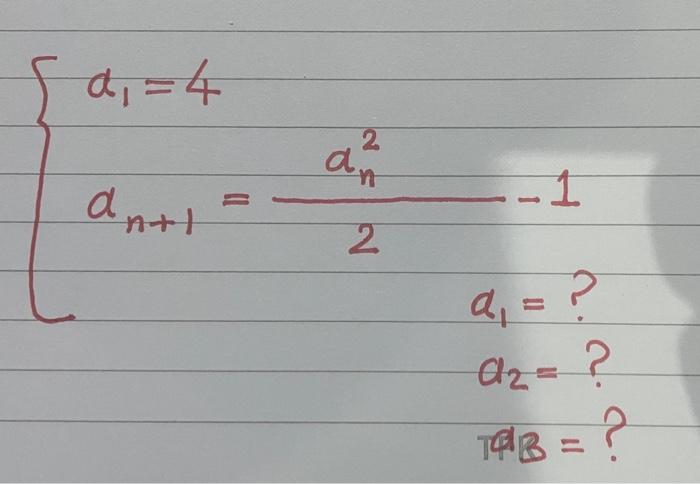 a₁ = 4
aₙ₊₁ = aₙ² / 2 - 1
a₁ = ?
a₂ = ?
a₃ = ?